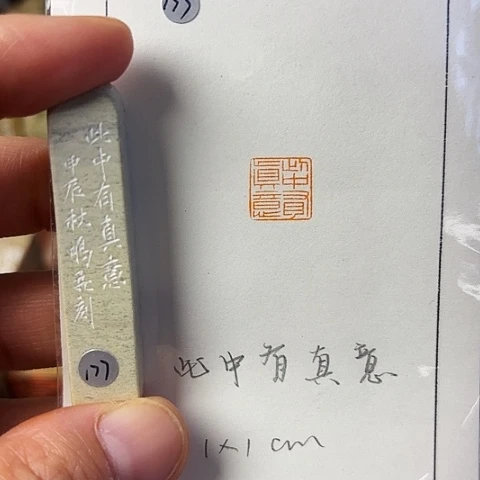 177
此中有真意
甲辰秋鹏展刻
177
此中有真意
此中有真意
1x1cm